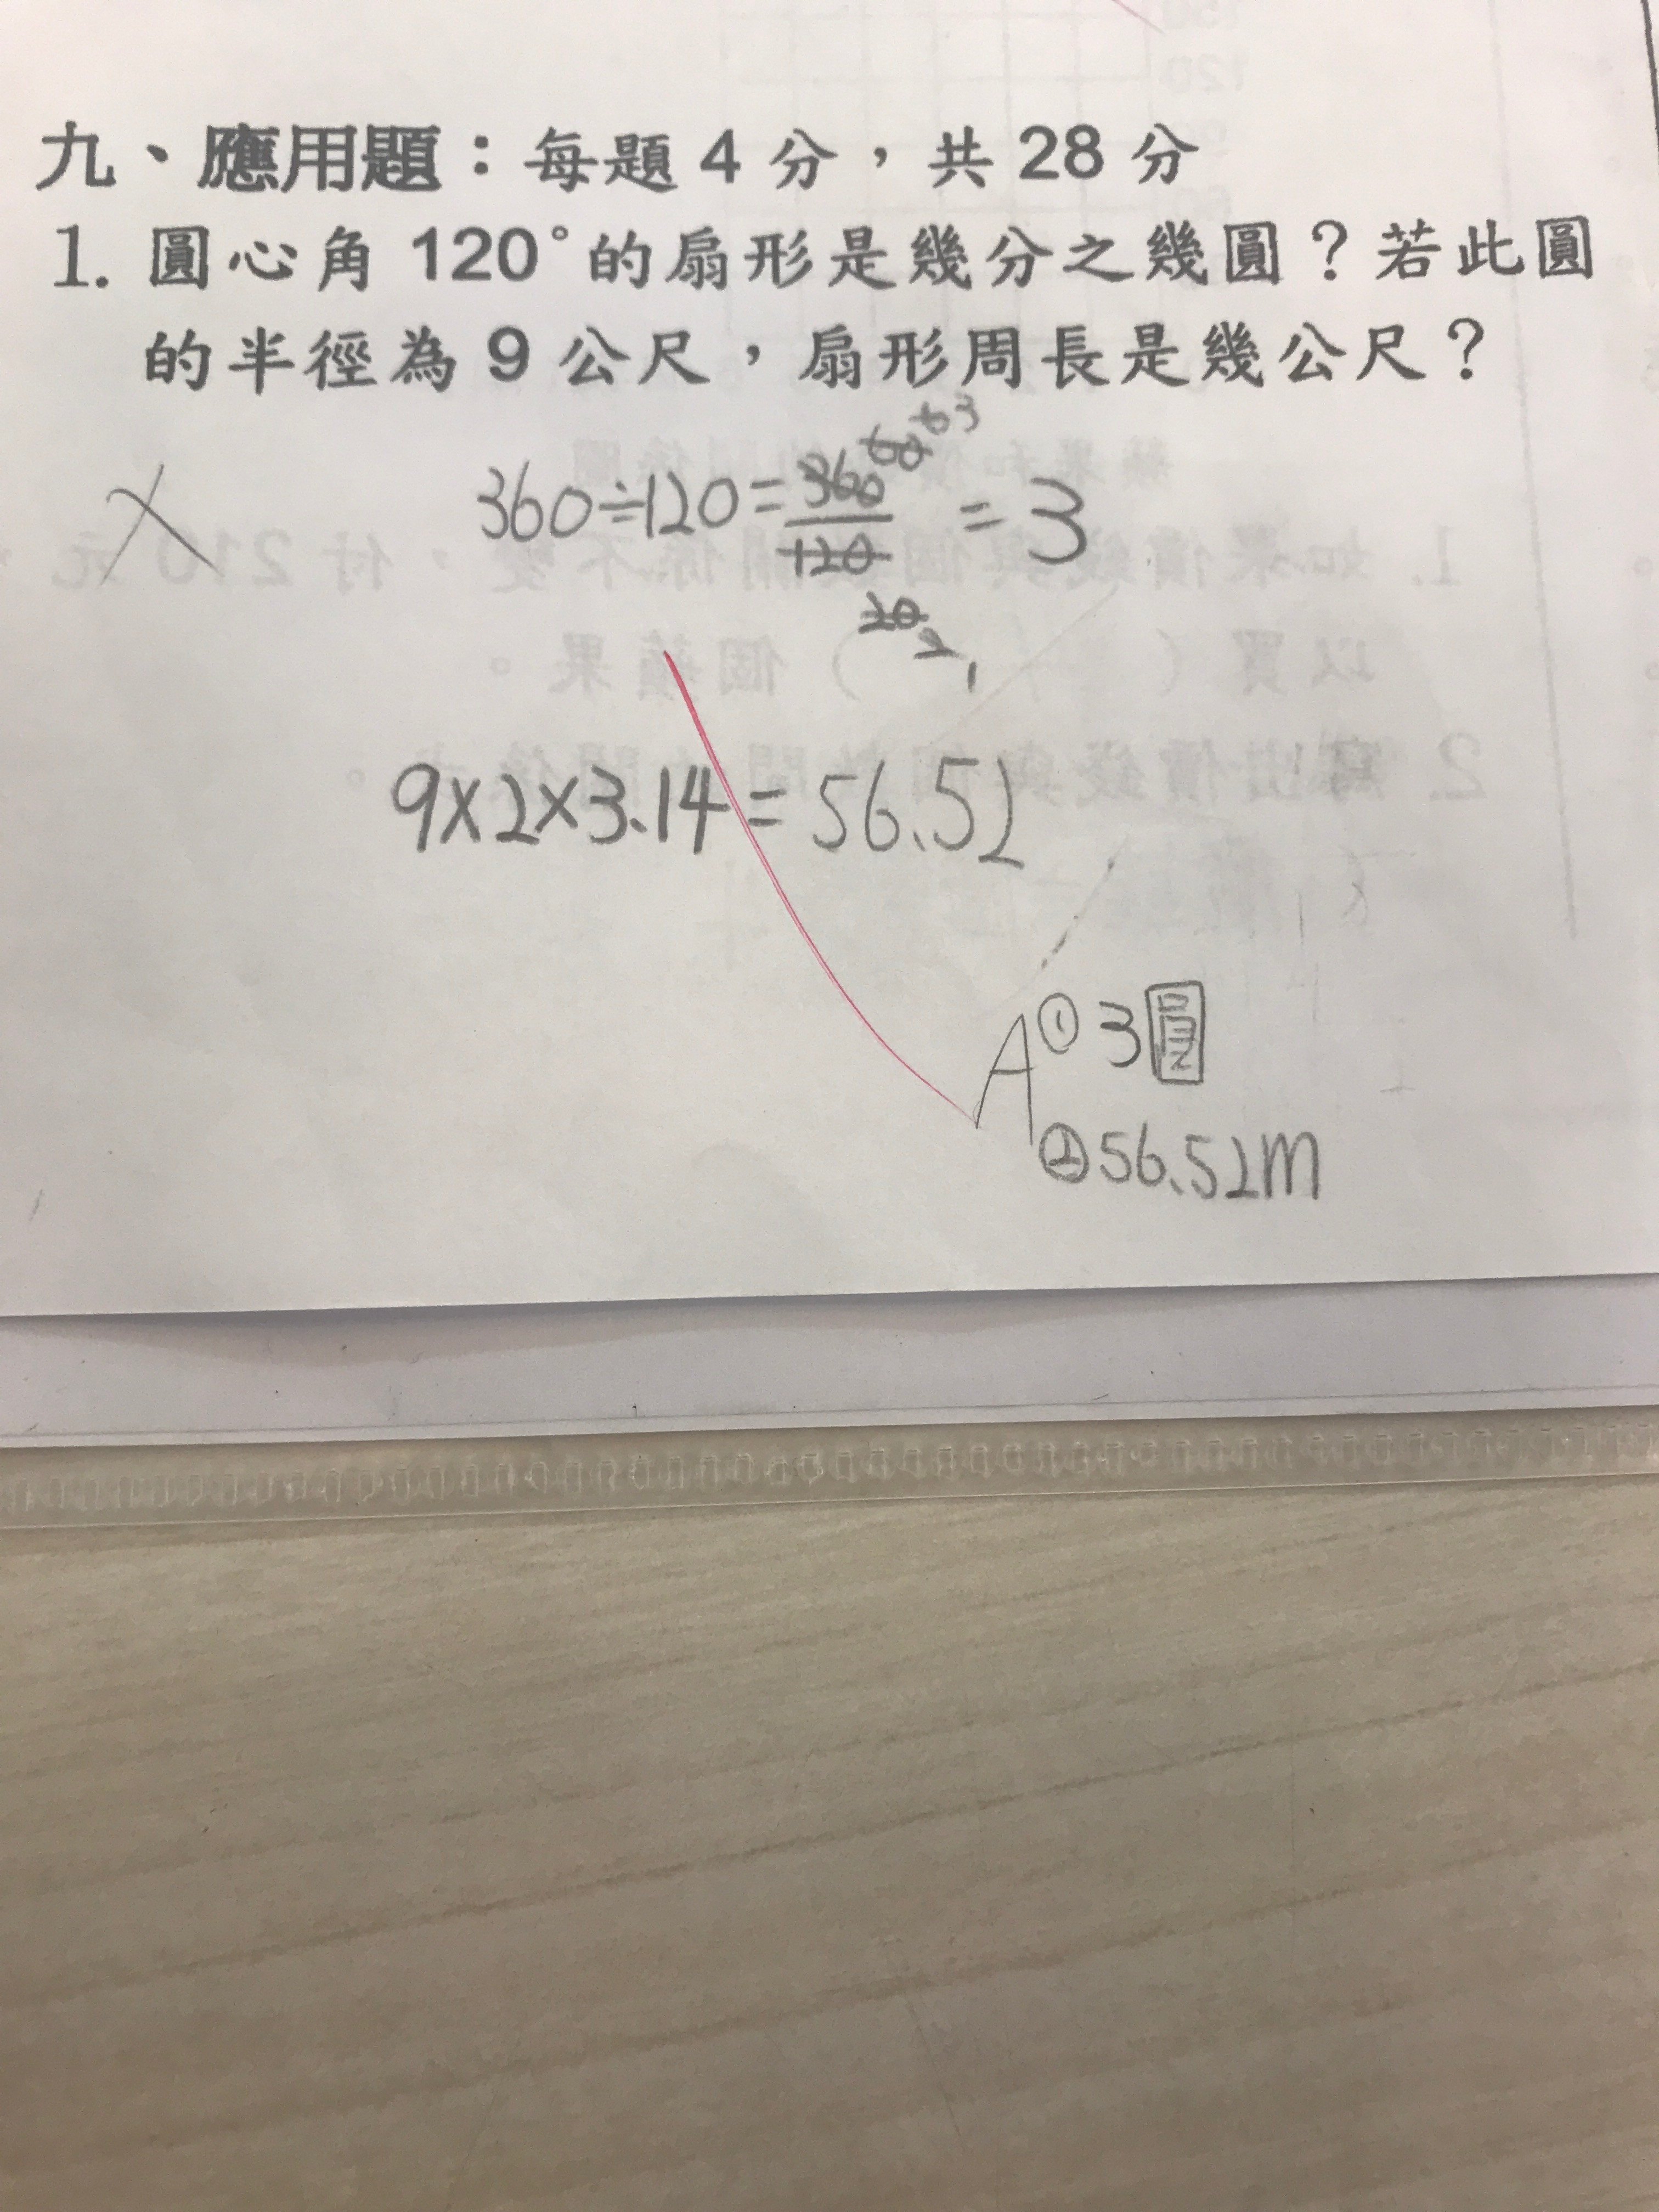 九、應用題：每題4分，共28分
1. 圓心角120°的扇形是幾分之幾圓？若此圓
的半徑為9公尺，扇形周長是幾公尺？
360÷120=360/120=3
60 6 3
20 2 1
9×2×3.14=56.52
A①3圓
②56.52m